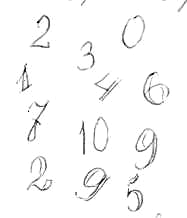 2 3 0
1 4 6
7 10 9
2 9 5